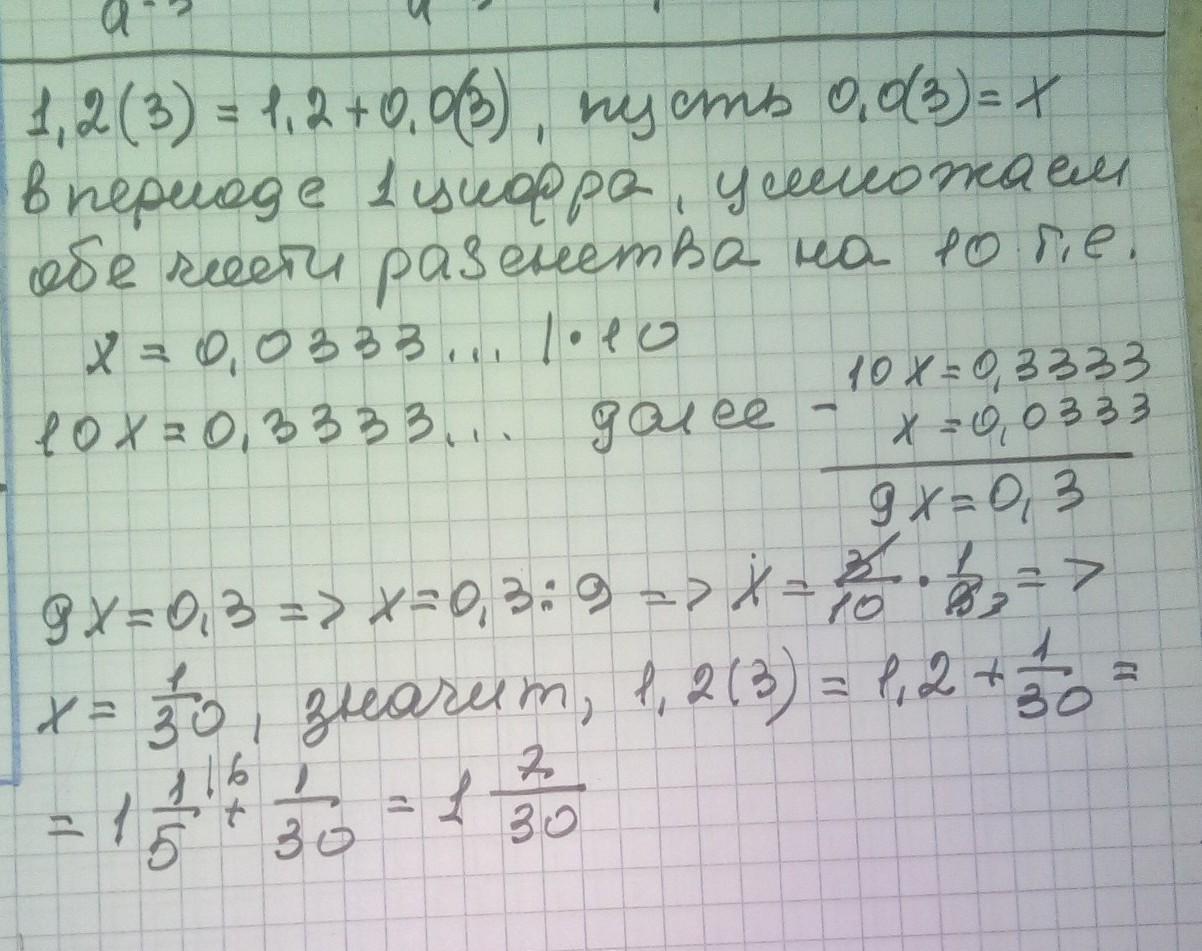 1,2(3) = 1,2 + 0,0(3), пусть 0,0(3) = x
в периоде 1 цифра, умножаем
обе части равенства на 10 т.е.
x = 0,0333... | · 10
10x = 0,3333... далее
- 10x = 0,3333
x = 0,0333
9x = 0,3
9x = 0,3 => x = 0,3 : 9 => x = 3/10 · 1/9 3 =>
x = 1/30, значит, 1,2(3) = 1,2 + 1/30 =
= 1 1/5 |6 + 1/30 = 1 7/30